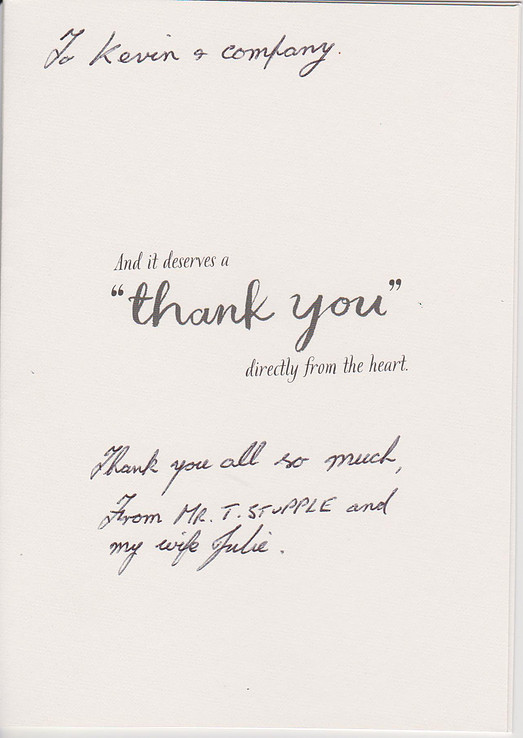 To Kevin & company.
And it deserves a
“thank you”
directly from the heart.
Thank you all so much,
From MR. T. STUPPLE and
my wife Julie.